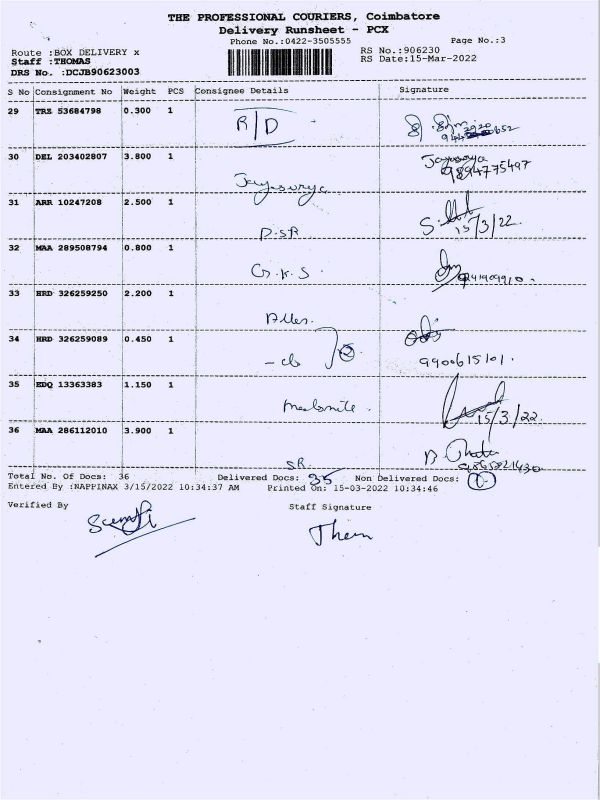 THE PROFESSIONAL COURIERS, Coimbatore
Delivery Runsheet - PCX
Phone No.:0422-3505555 Page No.:3
Route :BOX DELIVERY x RS No.:906230
Staff :THOMAS RS Date:15-Mar-2022
DRS No. :DCJB90623003
S No Consignment No Weight PCS Consignee Details Signature
29 TRZ 53684798 0.300 1
R/D
30 DEL 203402807 3.800 1 Jayasurya
9894775497
Jayasurya
31 ARR 10247208 2.500 1
15/3/22
D.SR
32 MAA 289508794 0.800 1
G.K.S
33 HRD 326259250 2.200 1
34 HRD 326259089 0.450 1
9900615101.
35 EDQ 13363383 1.150 1
15/3/22
36 MAA 286112010 3.900 1
SR.
Total No. Of Docs: 36 Delivered Docs: 35 Non Delivered Docs:
Entered By :NAPPINAX 3/15/2022 10:34:37 AM Printed On: 15-03-2022 10:34:46
Verified By Staff Signature